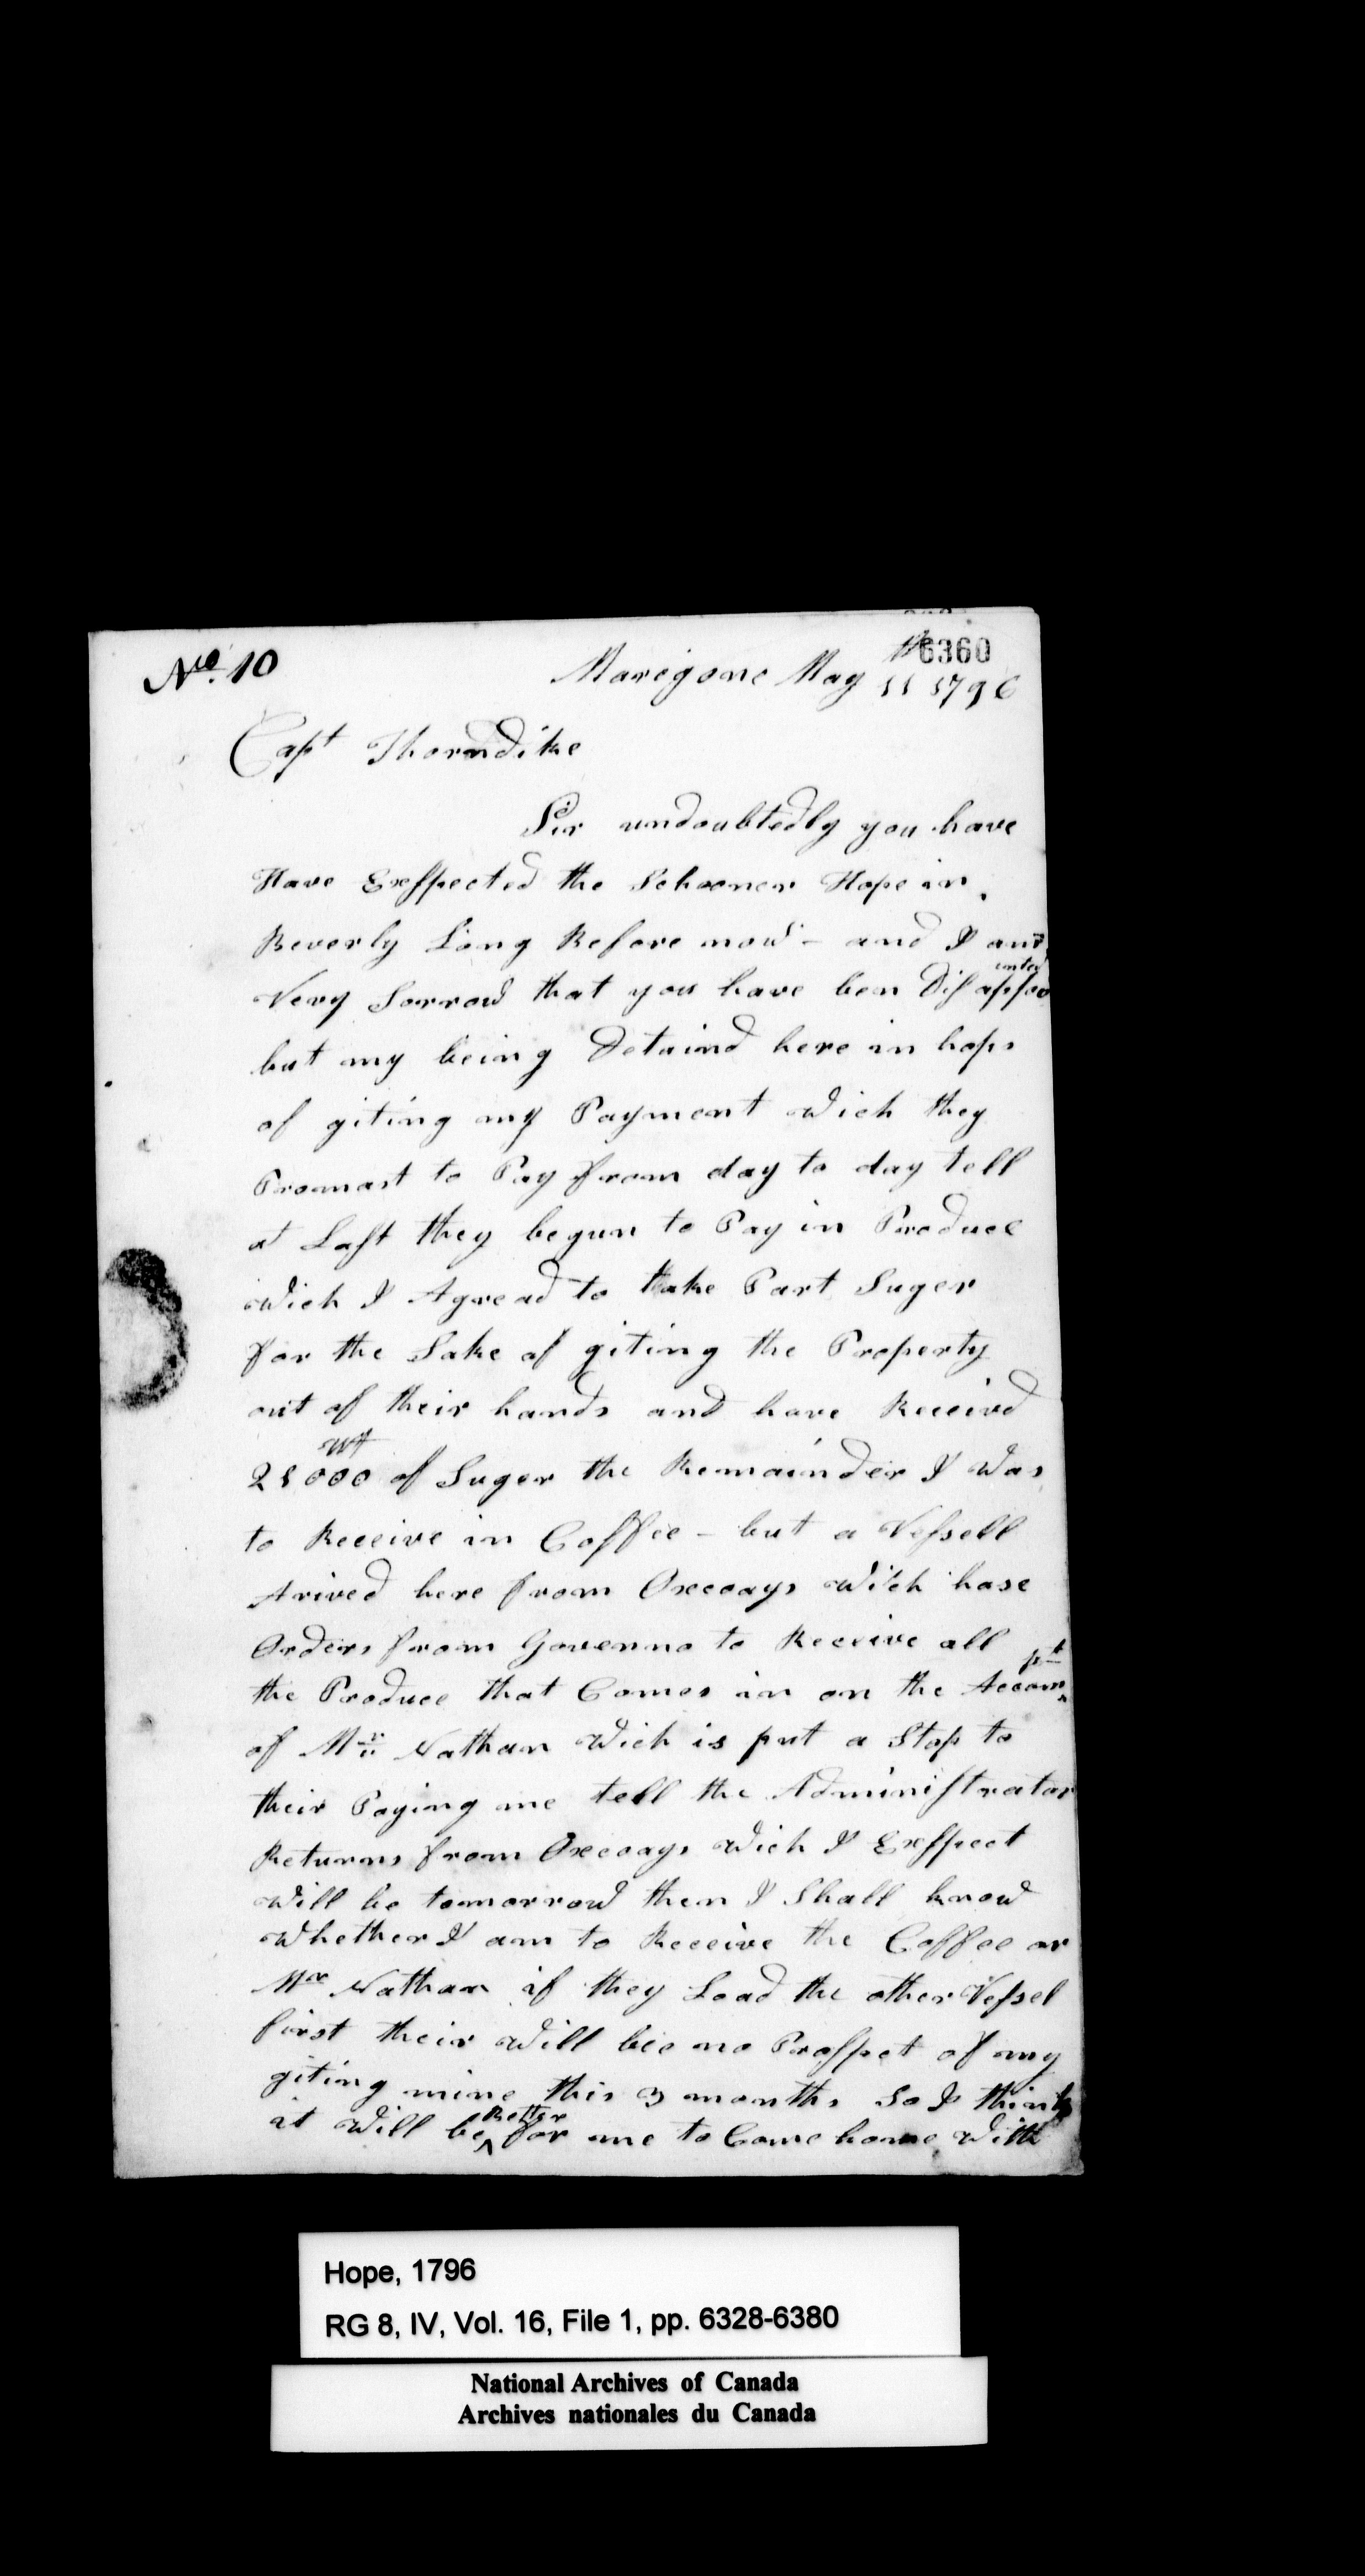 6360
No. 10
Maregone May 11th 1796
Capt Thorndike
Sir undoubtedly you have
Have Exspected the Schooner Hope in
Beverly Long Before now - and I am
Very Sorrow that you have ben Disappointed
but my being Detaind here in hops
of giting my Payment Wich they
Promast to Pay from day to day tell
at Last they begun to Pay in Produce
Wich I Agread to take Part Suger
for the Sake of giting the Property
out of their hands and have Receivd
21000 wt of Suger the Remainder I Was
to Receive in Coffee - but a Vessell
Arived here from Oxcoays Wich hase
Orders from Governno to Receive all
the Produce that Comes in on the Accompt
of Mr Nathan Wich is put a Stop to
their Paying me tell the Administrator
Returns from Oxcoays Wich I Exspect
Will be tomorrow then I Shall know
Whether I am to Receive the Coffee or
Mr Nathan if they Load the other Vessel
first their Will bee no Prospet of my
giting mine this 3 months So I think
it Will be Better for me to Come home With
Hope, 1796
RG 8, IV, Vol. 16, File 1, pp. 6328-6380
National Archives of Canada
Archives nationales du Canada